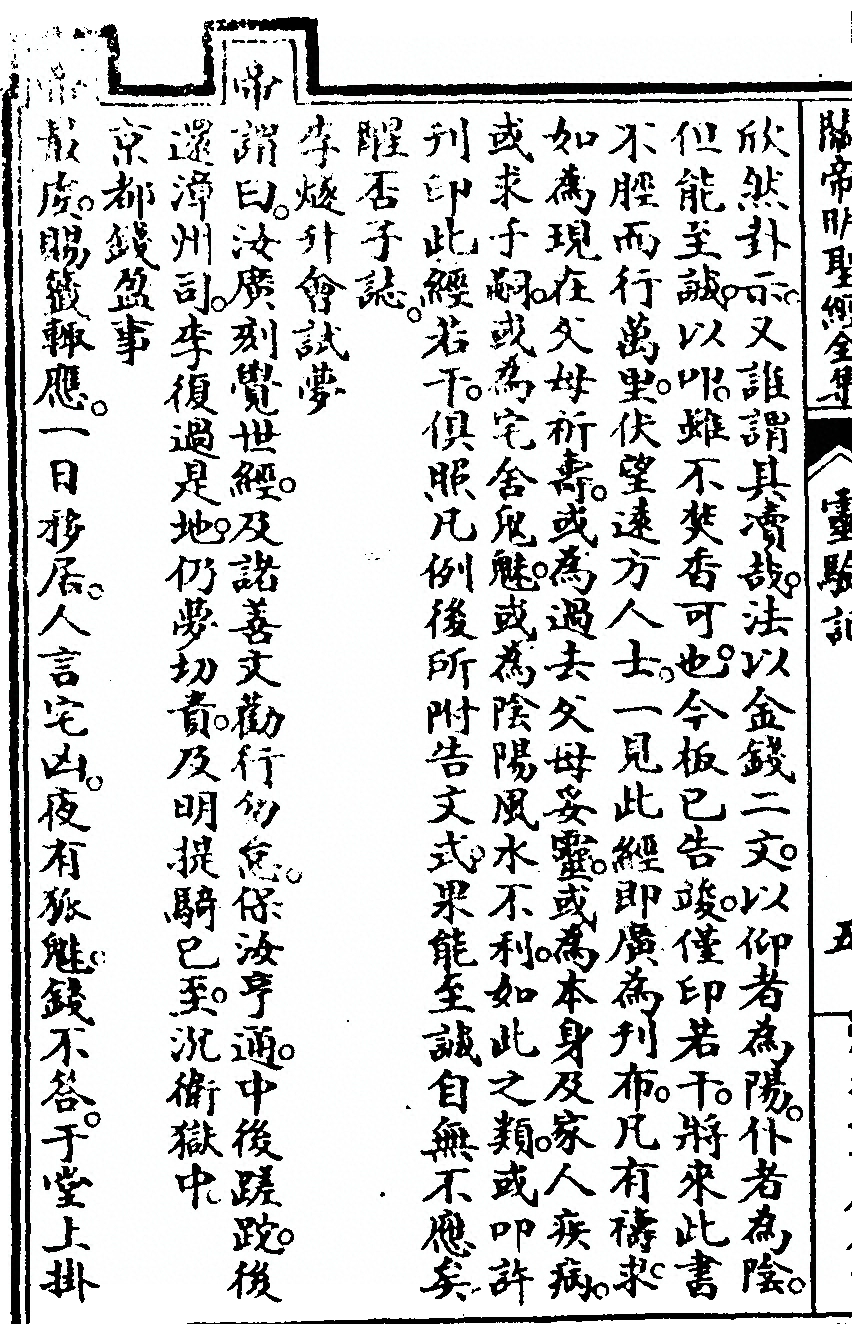 關帝明聖經全集 靈驗記 五
欣然卦示。又誰謂其瀆哉。法以金錢二文。以仰者為陽。仆者為陰。
但能至誠。以叩。雖不焚香可也。今板已告竣。僅印若干。將來此書
不脛而行萬里。伏望遠方人士。一見此經即廣為刊布。凡有禱求。
如為現在父母祈壽。或為過去父母妥靈。或為本身及家人疾病。
或求子嗣。或為宅舍鬼魅。或為陰陽風水不利。如此之類。或叩許
刊印此經若干。俱照凡例後所附告文式。果能至誠自無不應矣
醒否子誌。
李燧升會試夢
帝謂曰。汝廣刻覺世經。及諸善文勸行勿怠。保汝亨通。中後蹉跎。後
還漳州司。李復過是地。仍夢切責。及明提騎已至。況衛獄中
京都錢盈事
帝最虔。賜籤輒應。一日移居。人言宅凶。夜有狐魅。錢不答。于堂上掛